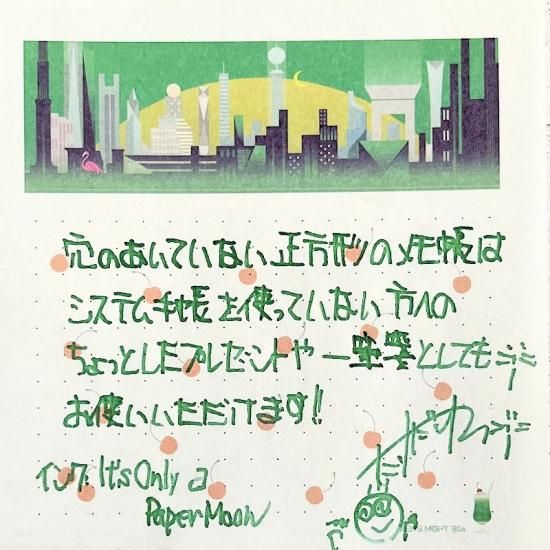 穴のあいていない正方形のメモ帳は
システム手帳を使っていない方への
ちょっとしたプレゼントや一筆箋としても
お使いいただけます!!
インク: It's Only a
Paper Moon
NIGHT '80s